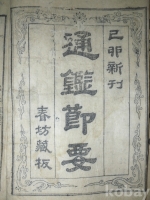 己卯新刊
通鑑節要
春坊藏板
kobay